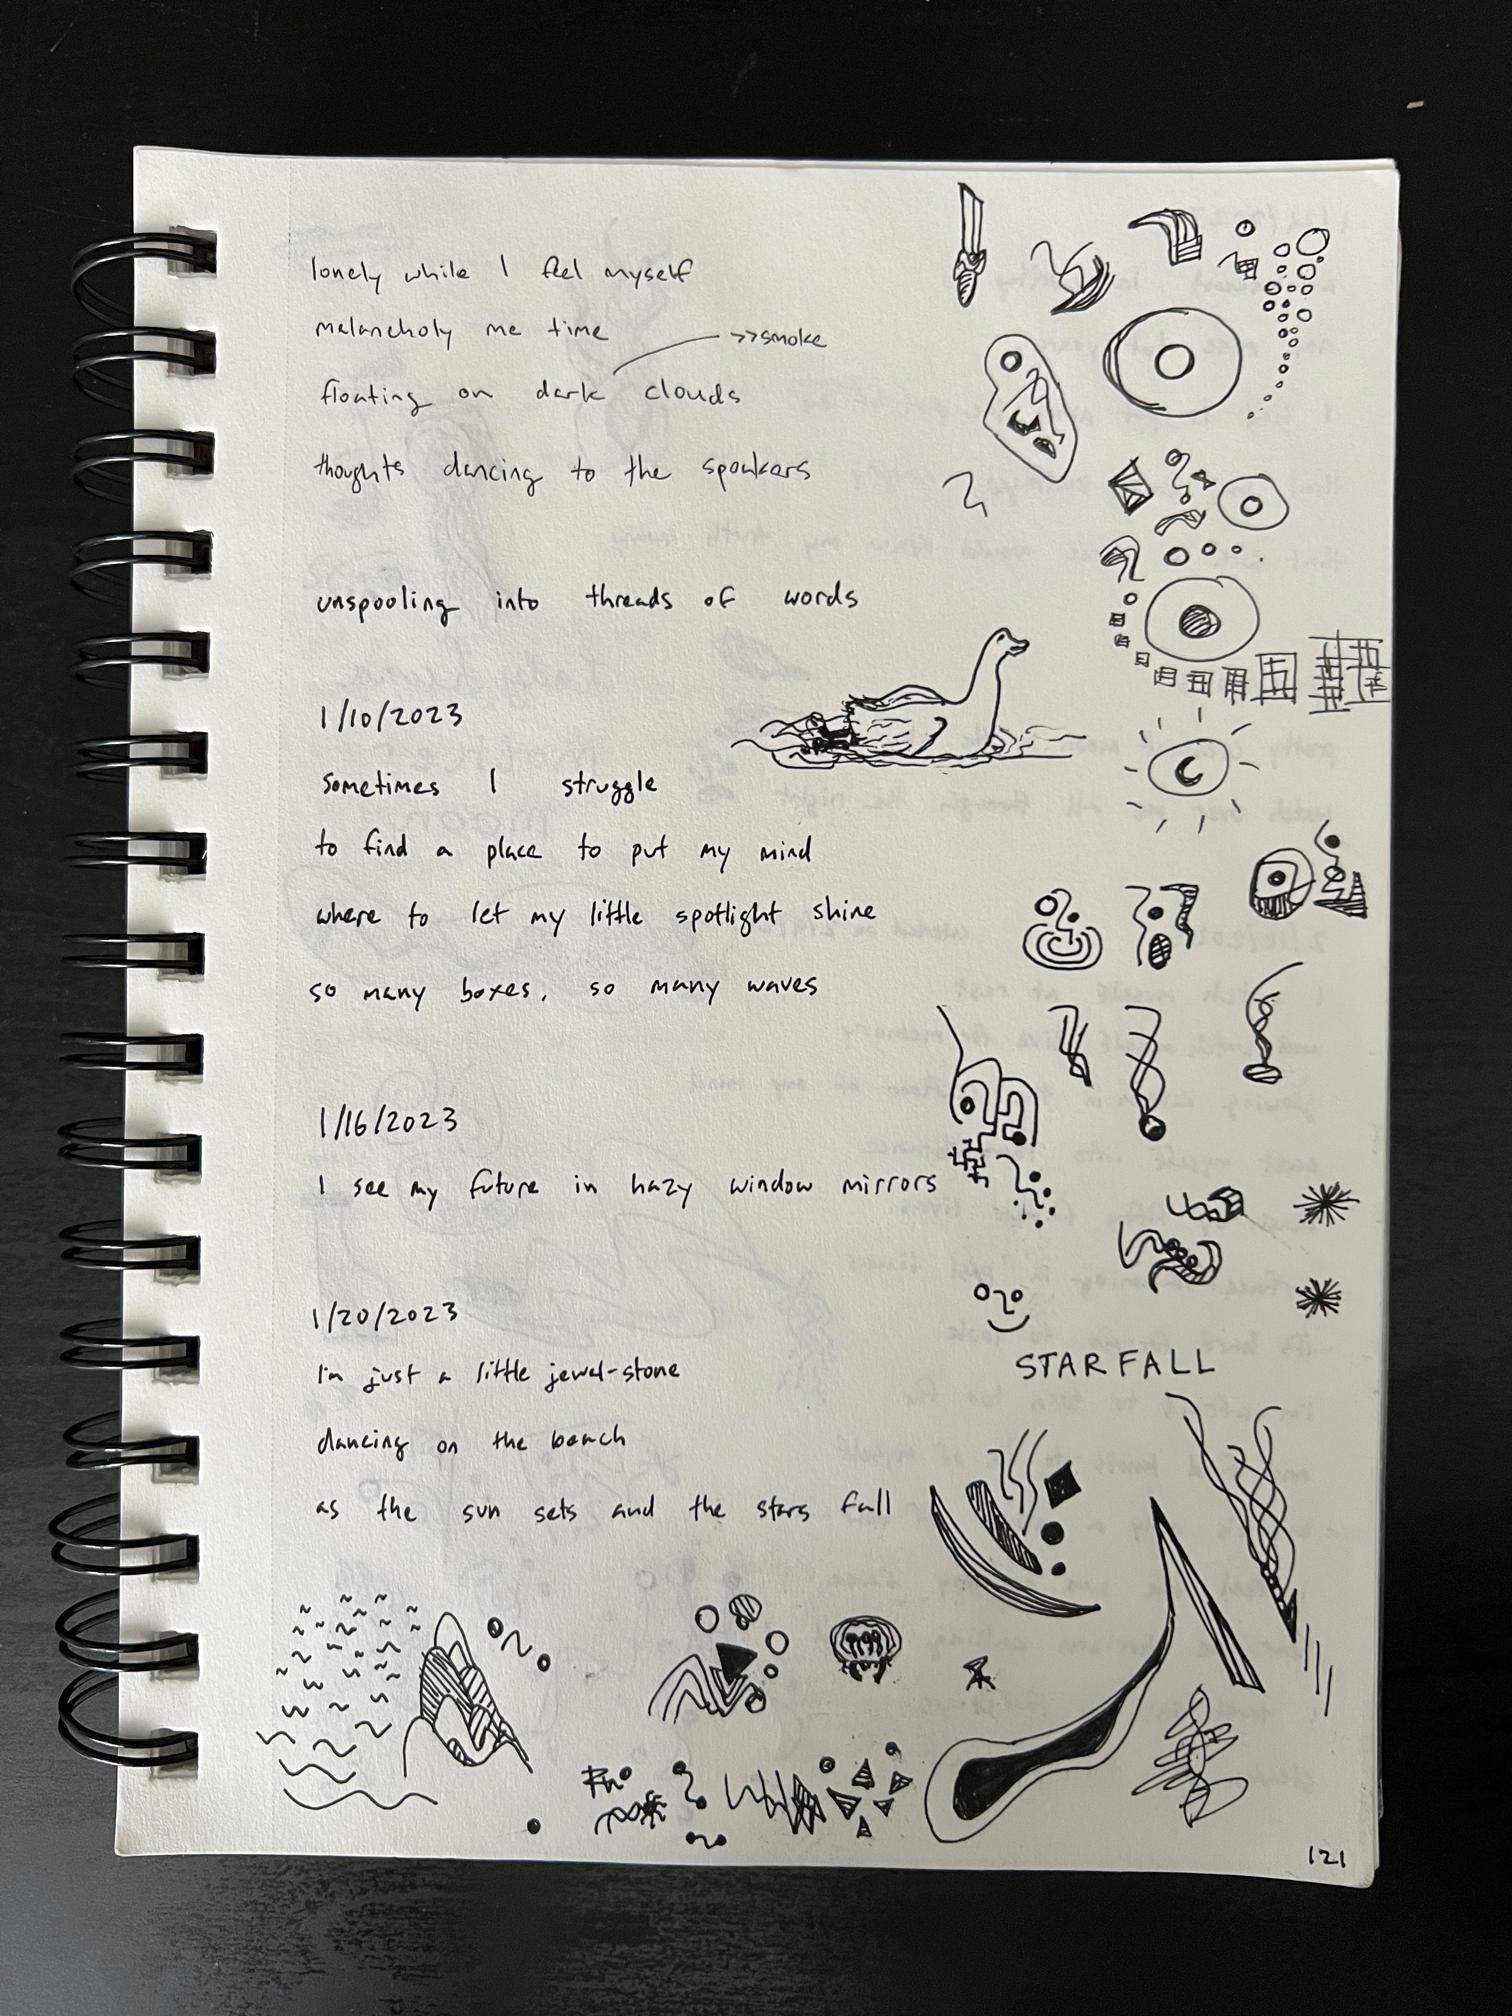 lonely while I feel myself
melancholy me time
>>smoke
floating on dark clouds
thoughts dancing to the speakers
unspooling into threads of words
1/10/2023
sometimes I struggle
to find a place to put my mind
where to let my little spotlight shine
so many boxes, so many waves
1/16/2023
I see my future in hazy window mirrors
1/20/2023
I'm just a little jewel-stone
dancing on the beach
as the sun sets and the stars fall
STARFALL
121